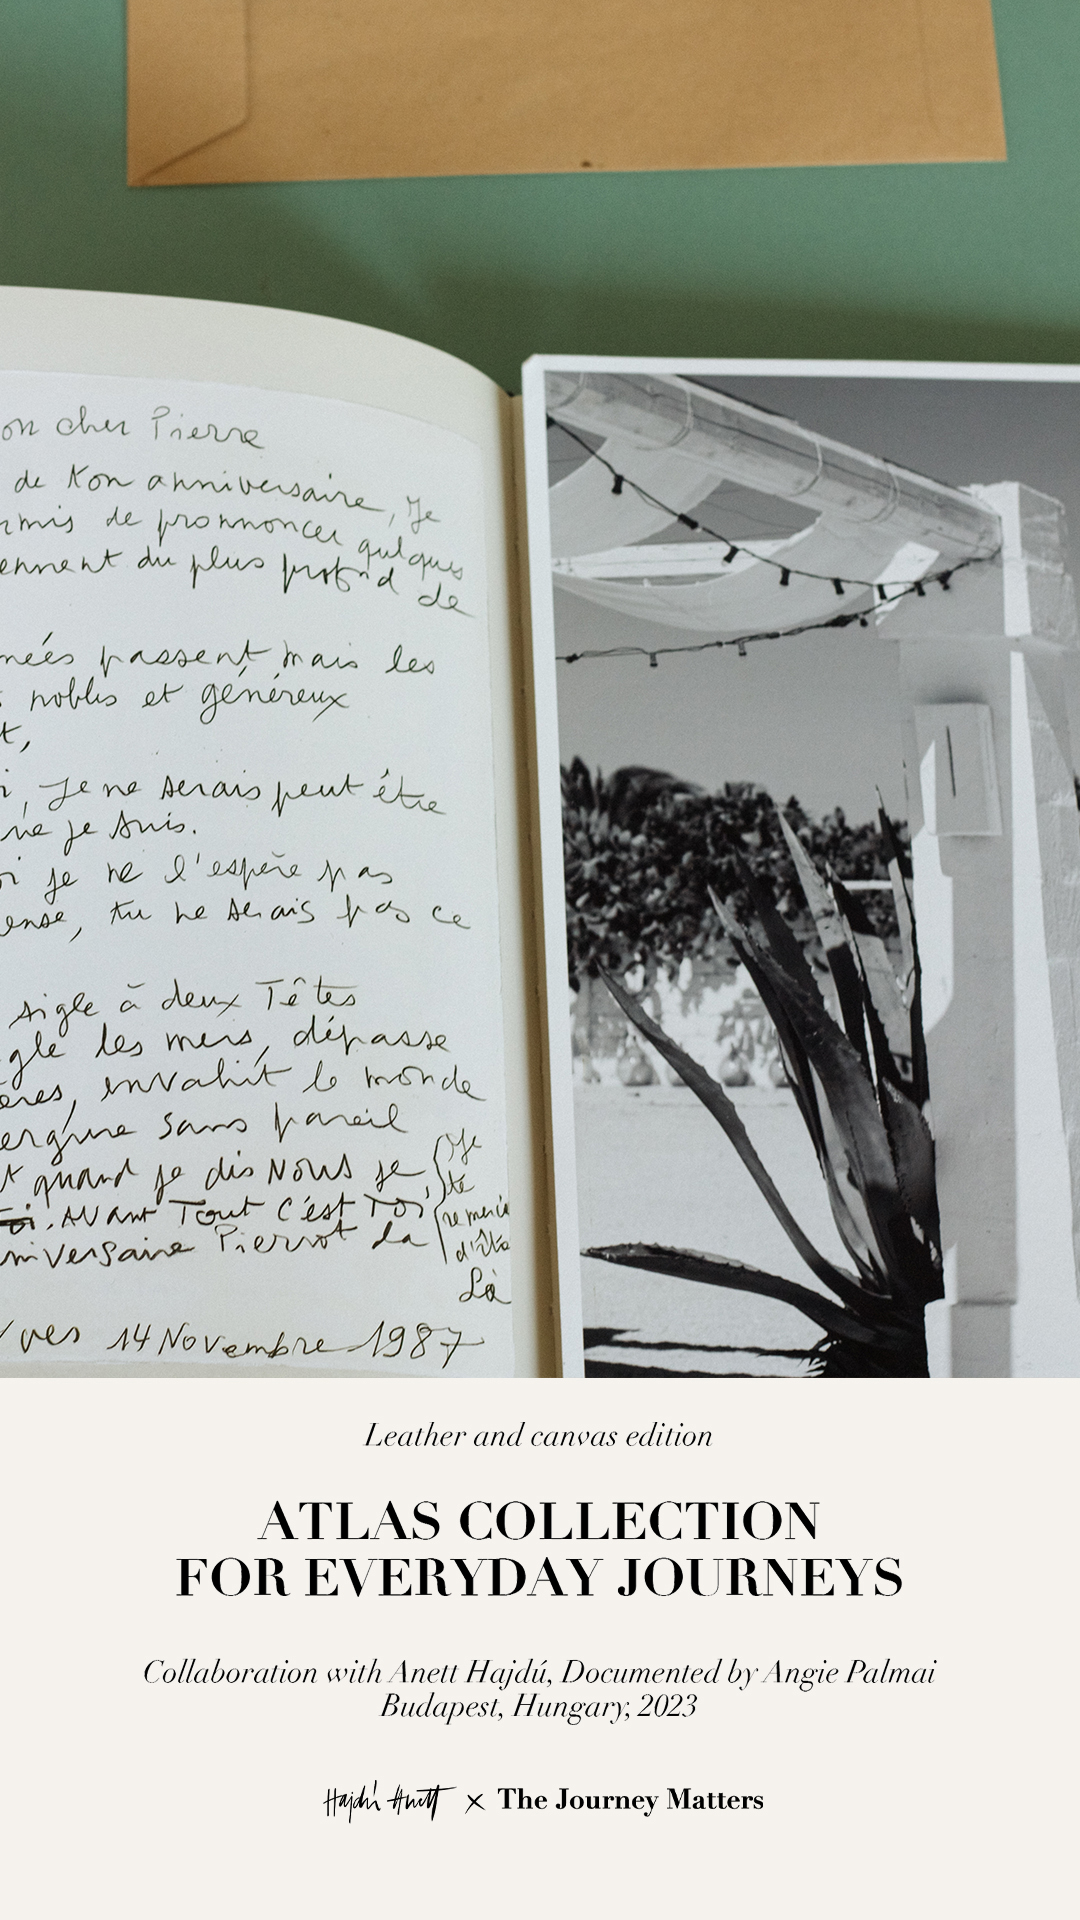 on cher Pierre
de ton anniversaire, Je
rmis de pronnoncer quelques
ennent du plus profond de
nées passent mais les
s nobles et généreux
t,
i, Je ne serais peut être
ue je suis.
oi je ne l'espère pas
ense, tu ne serais pas ce
Aigle à deux Têtes
gle les mers, dépasse
ères, envahit le monde
ergure sans pareil
t quand je dis NOUS je
Toi. AVant Tout C'est TOi
nniversaire Pierrot la
Je
te
remercie
d'être
Là
Yves 14 Novembre 1987
Leather and canvas edition
ATLAS COLLECTION
FOR EVERYDAY JOURNEYS
Collaboration with Anett Hajdú, Documented by Angie Palmai
Budapest, Hungary, 2023
Hajdú Anett × The Journey Matters